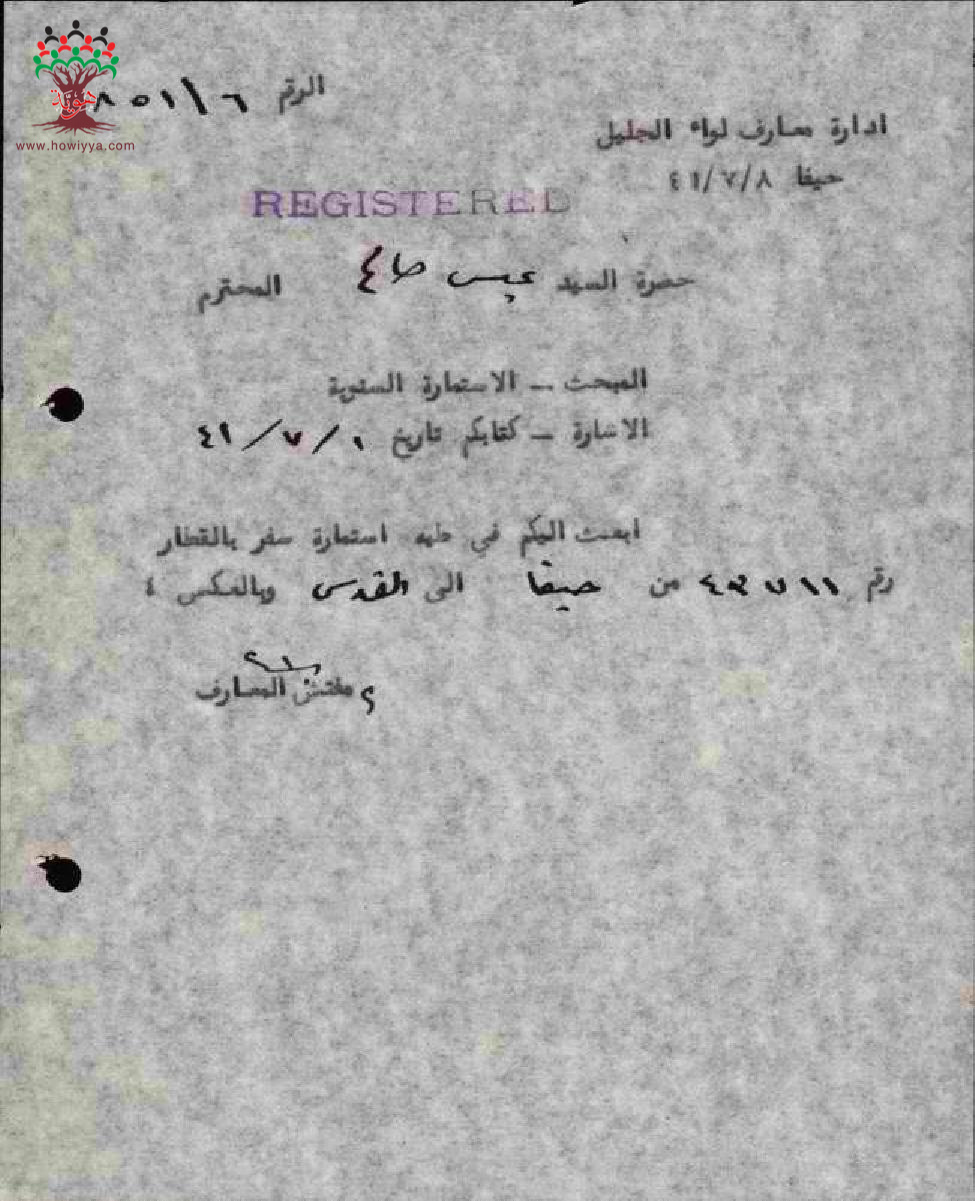 الرقم ٨٥١/٦
ادارة معارف لواء الجليل
حيفا ٤١/٧/٨
REGISTERED
حضرة السيد المحترم
المبحث – الاستمارة السنوية
الاشارة – كتابكم تاريخ ١ / ٧ / ٤١
ابعث اليكم في طيه استمارة سفر بالقطار
رقم من حيفا الى القدس وبالعكس ٤
مفتش المعارف
هوية
www.howiyya.com